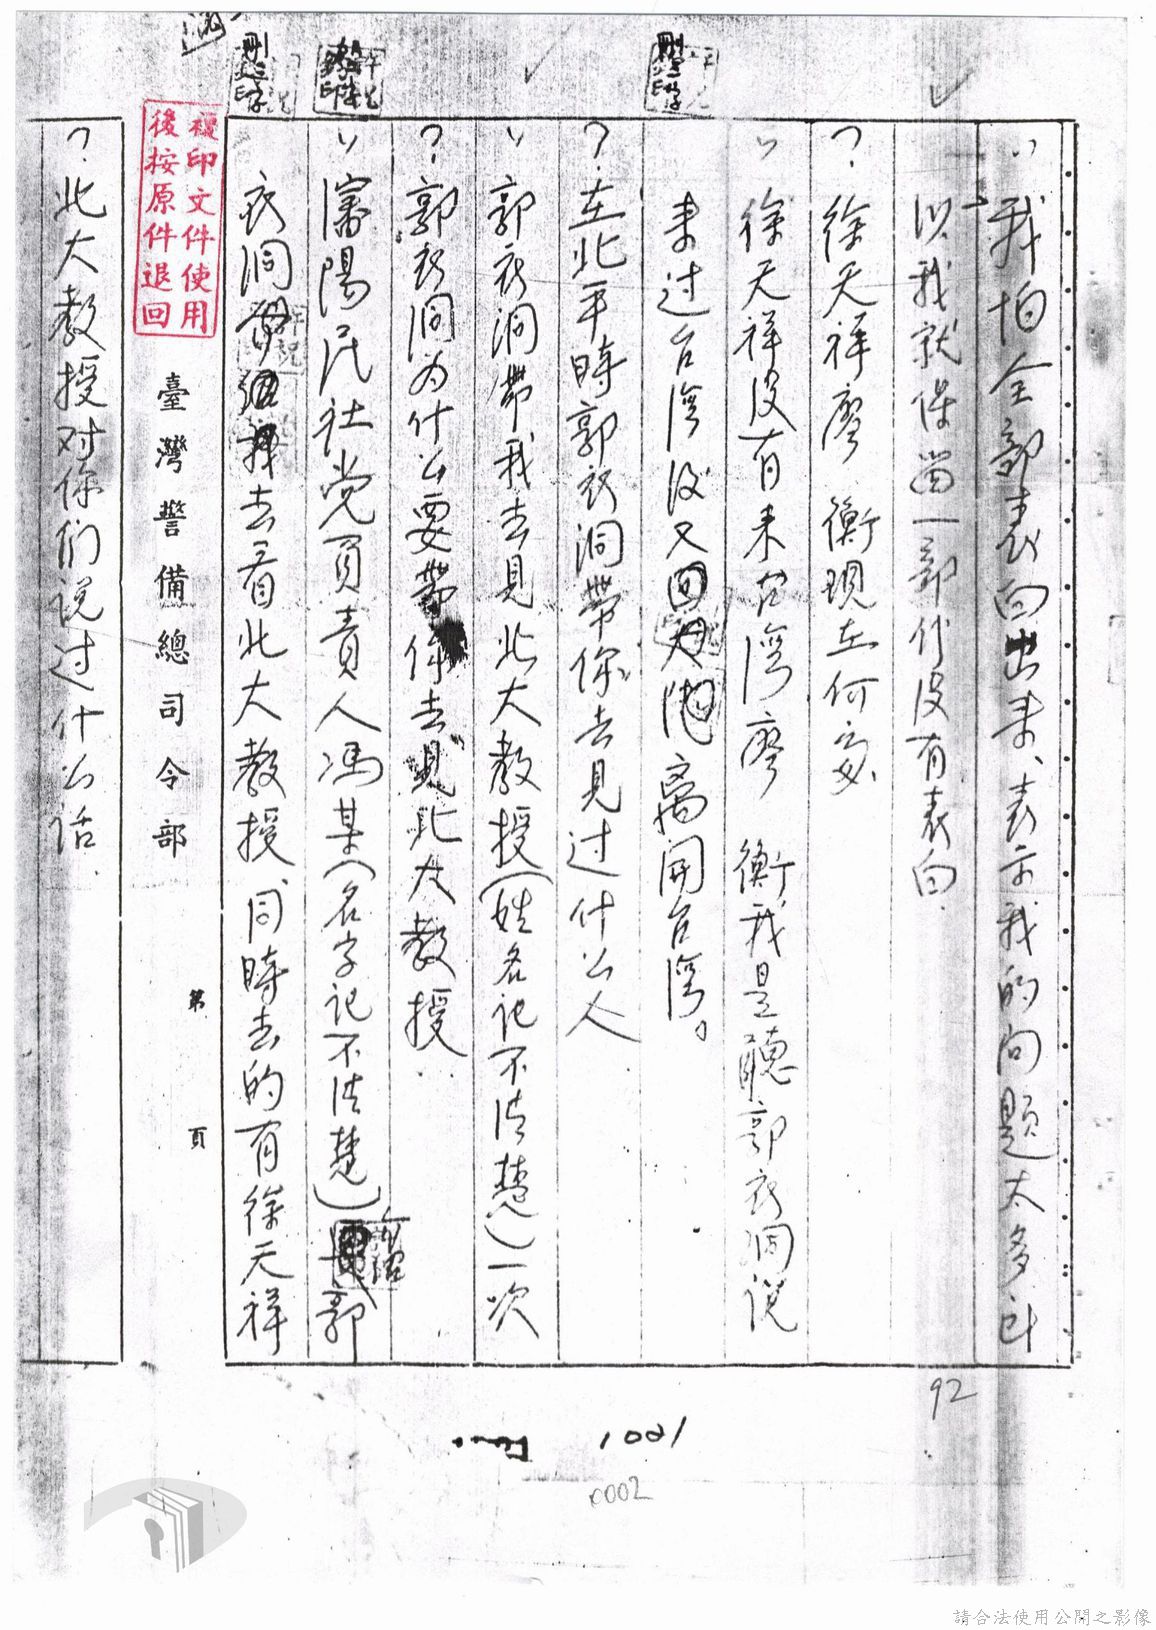 "我怕全部表白出来、表示我的问题太多、所
以我就保留一部份没有表白.
?.徐天祥廖衡現在何處
"徐天祥没有来台湾廖衡我是聽郭衣洞说
来过台湾後又離開台湾。
?.在北平時郭衣洞带你去見过什么人
"郭衣洞带我去見北大教授(姓名记不清楚)一次
?.郭衣洞为什么要带你去見北大教授
"瀋陽民社党負責人馮某(名字记不清楚)郭
衣洞去看北大教授同時去的有徐天祥
臺灣警備總司令部 第 頁
複印文件使用
後按原件退回
?.北大教授对你们说过什么话.
92
1001
0002
請合法使用公開之影像